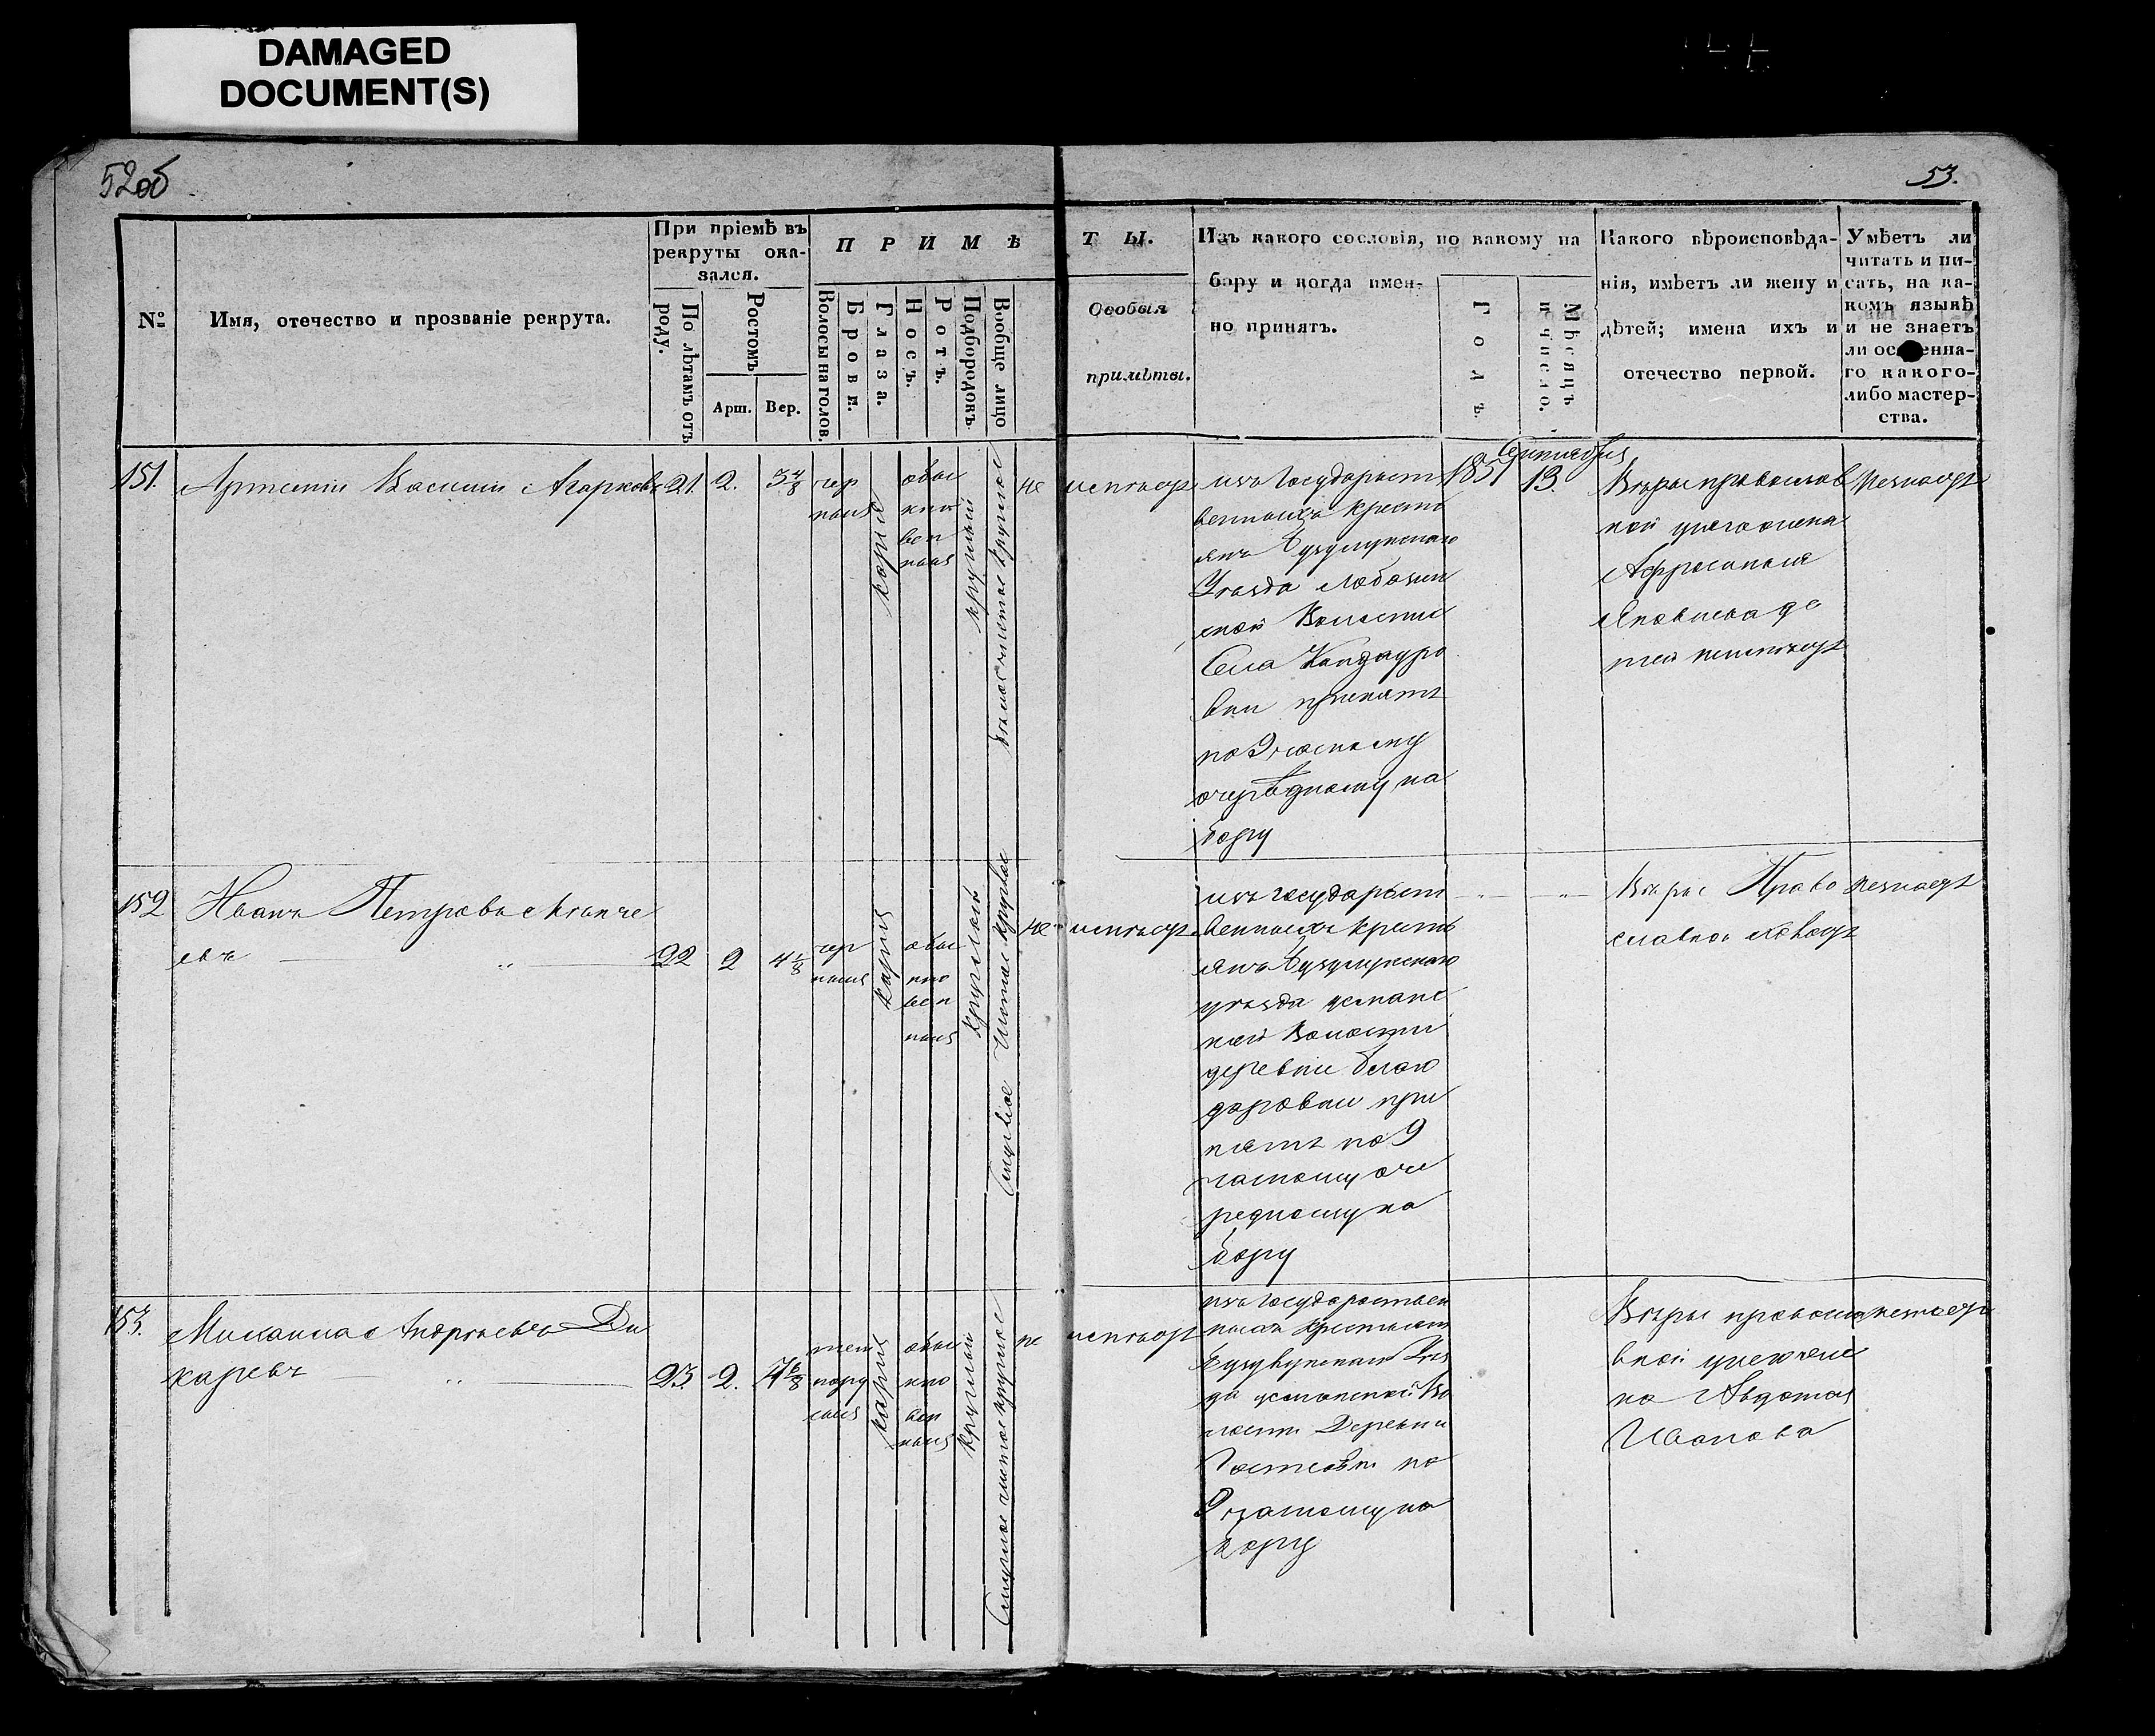 DAMAGED
DOCUMENT(S)
52об
53.
№
Имя, отечество и прозваніе рекрута.
При пріемѣ въ
рекруты ока-
зался.
По лѣтамъ отъ
роду.
Ростомъ
Арш.
Вер.
ПРИМѢ
Волосы на голов.
Брови.
Глаза.
Носъ.
Ротъ.
Подбородокъ.
Вообще лицо
ТЫ.
Особыя
примѣты.
Изъ какого сословія, по какому на
бору и когда имен-
но принятъ.
Годъ.
Мѣсяцъ
и число.
Какого вѣроисповѣда-
нія, имѣетъ ли жену и
дѣтей; имена ихъ и
отечество первой.
Умѣетъ ли
читать и пи-
сать, на ка-
комъ языкѣ
и не знаетъ
ли ос енна-
го какого-
либо мастер-
ства.
151.
21.
2.
3 4/8
чер
ныя
карія
обык
но
вен
ныя
круглый
не
имѣетъ
изъ Государст
венныхъ кресть
янъ Бузулукскаго
Уѣзда
ской Волости
Села Кандауро
вки принятъ
по 9 частному
очередному на
бору
1851
Сентября
13.
Вѣры православ
ной у него жена
Афросинья
Яковлева де
тей неимѣетъ
незнаетъ
152
Иванъ Петровъ
евъ
22
2
4 1/8
чер
ныя
карія
обык
но
вен
ныя
круглый
Смуглое чистое круглое
не
имѣетъ
изъ государст
венныхъ кресть
янъ Бузулукскаго
уѣзда
кой Волости
деревни Благо
даровки при
нятъ по 9
частному оче
редному на
бору
Вѣры Право
славной холостъ
незнаетъ
153.
Михаила Андрѣевъ Ди
каревъ
23.
2.
4 6/8
тем
нору
сыя
карія
обык
но
вен
ныя
круглый
Смуглое чистое круглое
не
имѣетъ
изъ Государствен
ныхъ Крестьянъ
Бузулукскаго Уѣз
да
лости Деревни
по
9 частному на
бору
Вѣры правосла
вной у него же
на Авдотья
Иванова
незнаетъ